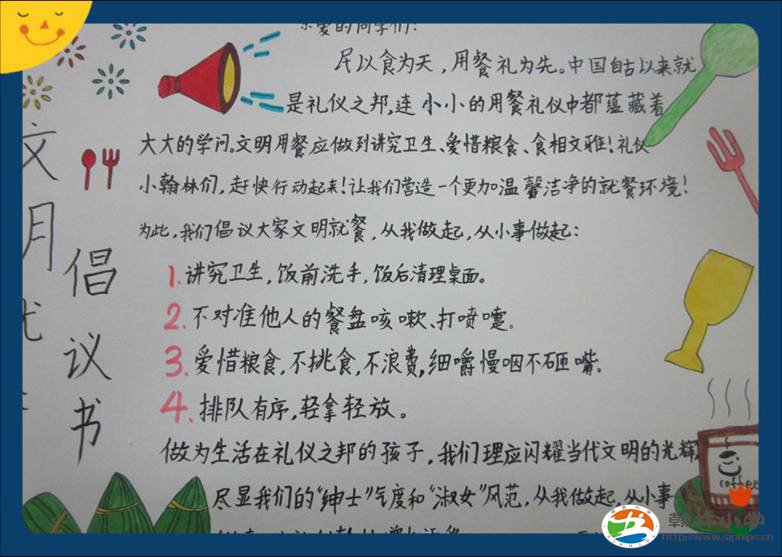 亲爱的同学们:
民以食为天,用餐礼为先。中国自古以来就
是礼仪之邦,连小小的用餐礼仪中都蕴藏着
大大的学问。文明用餐应做到讲究卫生、爱惜粮食、食相文雅!礼仪
小翰林们,赶快行动起来!让我们营造一个更加温馨洁净的就餐环境!
为此,我们倡议大家文明就餐,从我做起,从小事做起:
1.讲究卫生,饭前洗手,饭后清理桌面。
2.不对准他人的餐盘咳嗽、打喷嚏。
3.爱惜粮食,不挑食,不浪费,细嚼慢咽不砸嘴。
4.排队有序,轻拿轻放。
做为生活在礼仪之邦的孩子,我们理应闪耀当代文明的光辉
尽显我们的“绅士”气度和“淑女”风范,从我做起,从小事
文明
倡议书
coffee
翰林小学
http://www.siphlps.cn